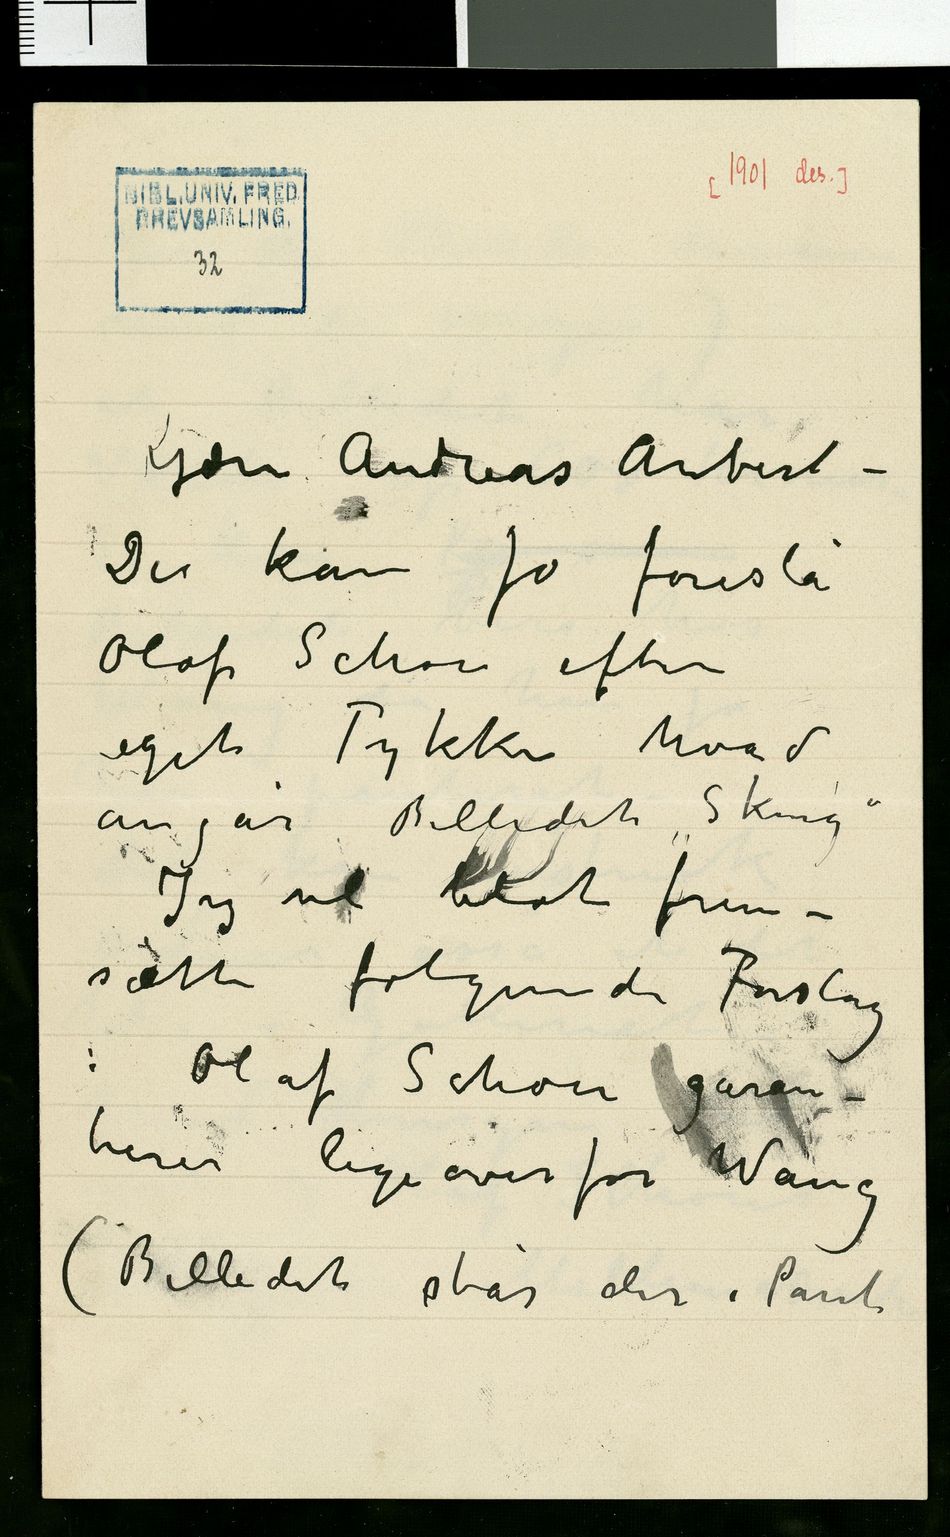 BIBL.UNIV. FRED
BREVSAMLING.
32
[1901 des.]
Kjære Andreas Aubert –
De kan jo foreslå
Olaf Schou efter
eget Tykke hvad
angår Billedet „Skrig“
Jeg vil blot frem–
sætte følgende Forslag
: Olaf Schou garan–
terer ligeoverfor Wang
(Billedet står der i Pant